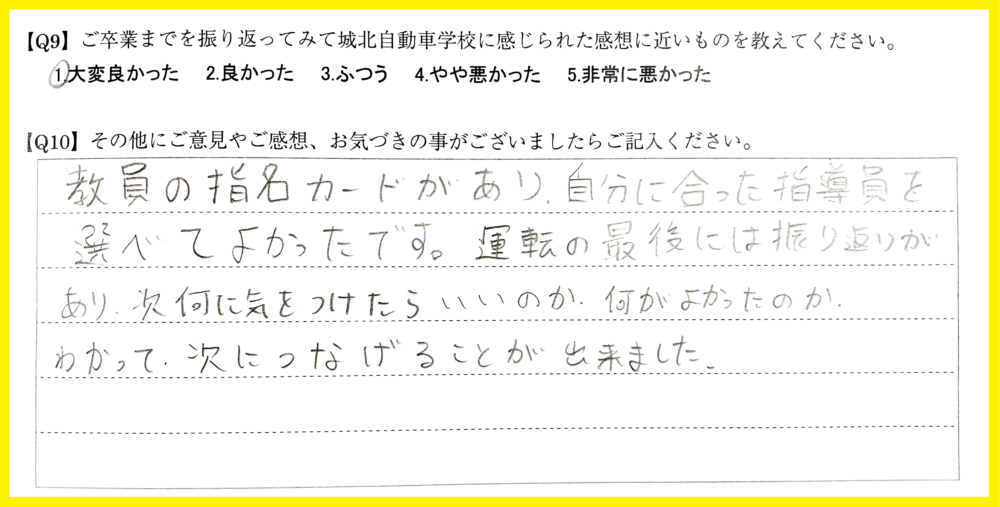 【Q9】ご卒業までを振り返ってみて城北自動車学校に感じられた感想に近いものを教えてください。
1.大変良かった 2.良かった 3.ふつう 4.やや悪かった 5.非常に悪かった
【Q10】その他にご意見やご感想、お気づきの事がございましたらご記入ください。
教員の指名カードがあり、自分に合った指導員を
選べてよかったです。運転の最後には振り返りが
あり、次何に気をつけたらいいのか、何がよかったのか、
わかって、次につなげることが出来ました。